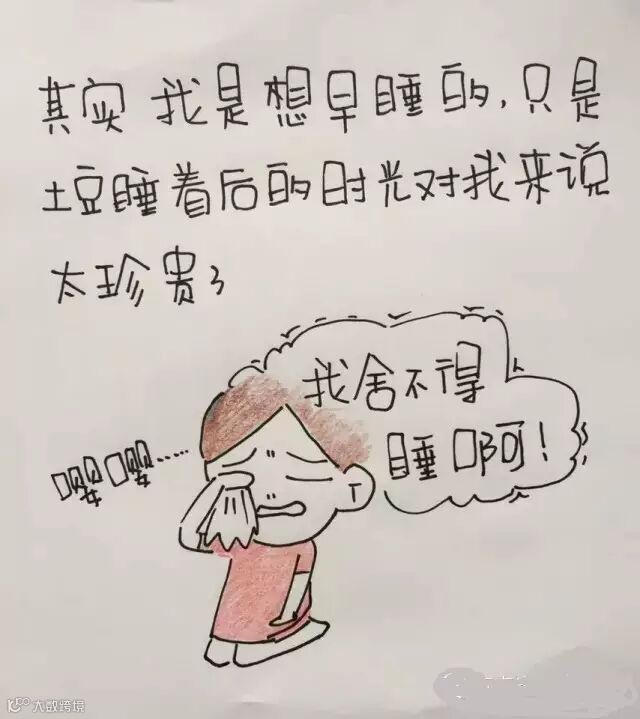 其实 我是想早睡的，只是
土豆睡着后的时光对我来说
太珍贵了
我舍不得
睡啊！
嘤嘤……
大数跨境